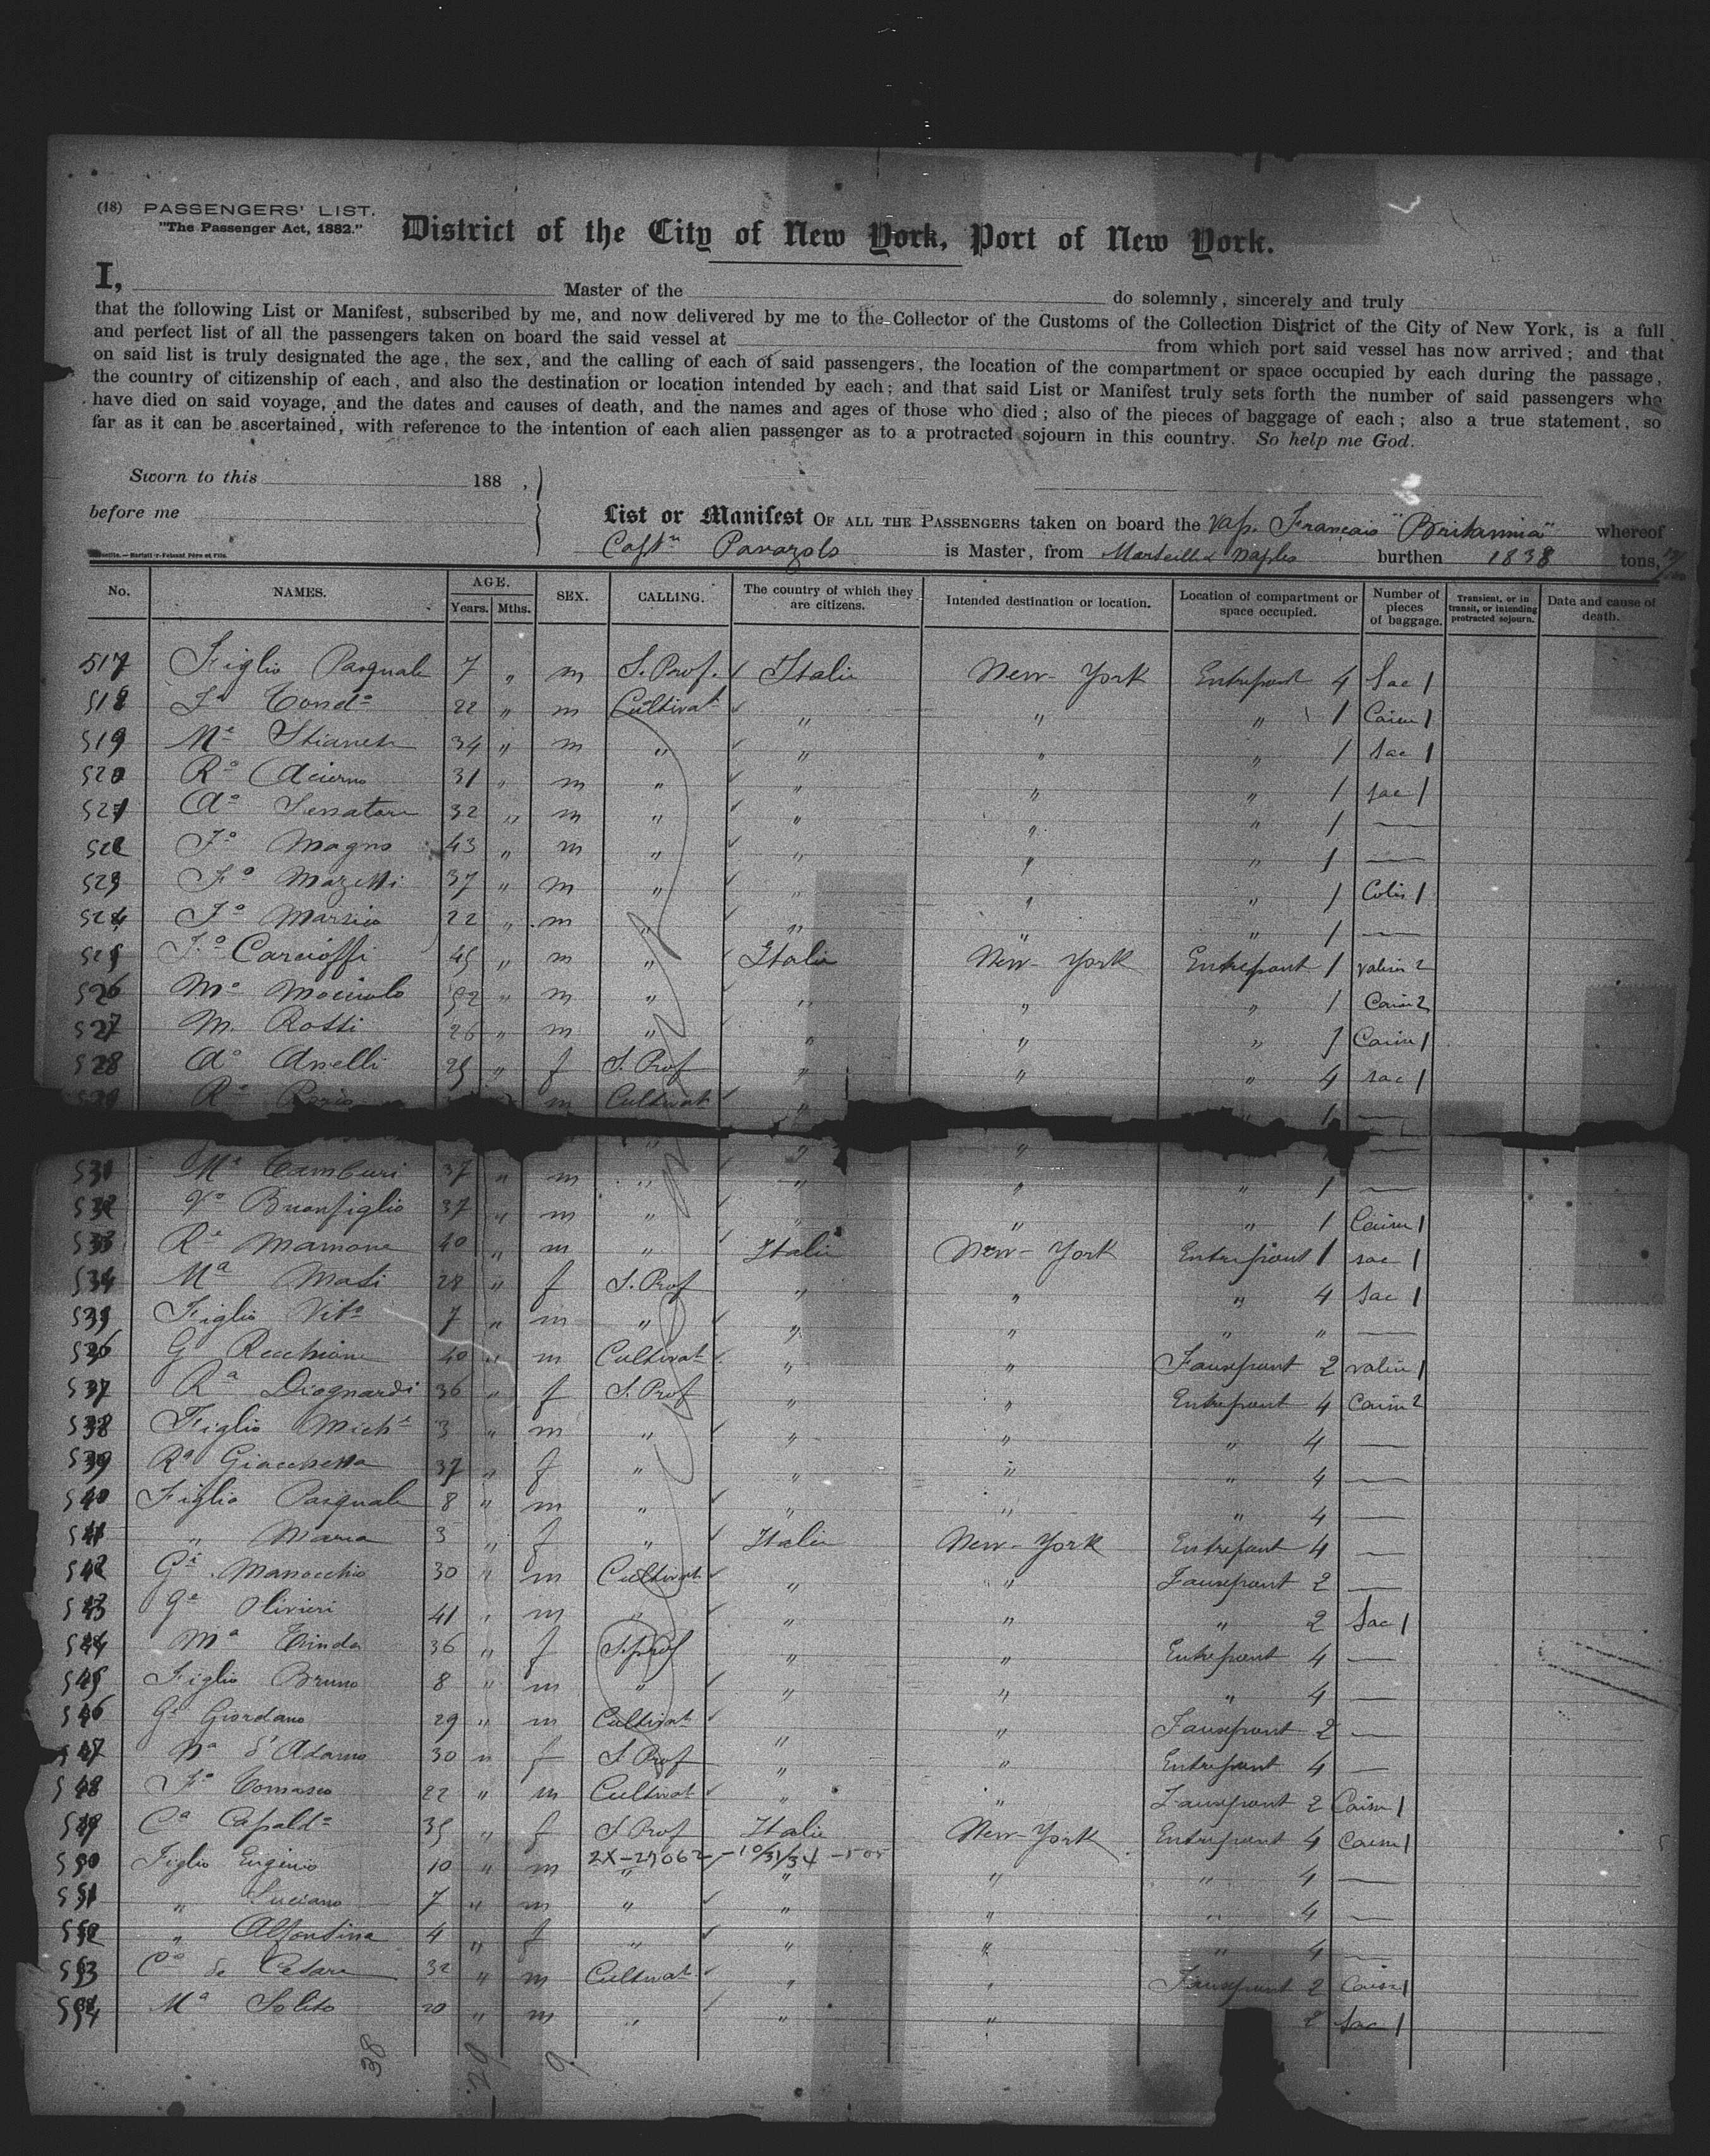 (18) PASSENGERS' LIST.
"The Passenger Act, 1882."
District of the City of New York, Port of New York.
I, Master of the do solemnly, sincerely and truly
that the following List or Manifest, subscribed by me, and now delivered by me to the Collector of the Customs of the Collection District of the City of New York, is a full
and perfect list of all the passengers taken on board the said vessel at from which port said vessel has now arrived; and that
on said list is truly designated the age, the sex, and the calling of each of said passengers, the location of the compartment or space occupied by each during the passage,
the country of citizenship of each, and also the destination or location intended by each; and that said List or Manifest truly sets forth the number of said passengers who
have died on said voyage, and the dates and causes of death, and the names and ages of those who died; also of the pieces of baggage of each; also a true statement, so
far as it can be ascertained, with reference to the intention of each alien passenger as to a protracted sojourn in this country. So help me God.
Sworn to this 188 ,
before me
List or Manifest OF ALL THE PASSENGERS taken on board the Vap. Français "Britannia" whereof
Captn is Master, from Marseille & Naples burthen 1838 tons,
No. NAMES. AGE. Years. Mths. SEX. CALLING. The country of which they are citizens. Intended destination or location. Location of compartment or space occupied. Number of pieces of baggage. Transient, or in transit, or intending protracted sojourn. Date and cause of death.
517 Figlio Pasquale 7 " m S. Prof. Italie New-York Entrepont 4 Sac 1
518 Fo Condo 22 " m Cultivat " " " 1 Caisse 1
519 34 " m " " " " 1 Sac 1
520 Ro Acierno 31 " m " " " " 1 Sac 1
521 Ao Senatore 32 " m " " " " 1 —
522 Fo Magno 43 " m " " " " 1 —
523 Fo Mazetti 37 " m " " " " 1 Colis 1
524 Fo Marsico 22 " m " " " " 1 —
525 Fo Carcioffi 45 " m " Italie New-York Entrepont 1 valise 2
526 Mo 52 " m " " " " 1 Caisse 2
527 M. Rossi 26 " m " " " " 1 Caisse 1
528 Ao Anelli 25 " f S. Prof " " " 4 sac 1
529 Ro m Cultivat " " 1 —
" " " —
531 Me Tamburi 37 " m " " " " 1 —
532 Vo Buonfiglio 37 " m " " " " 1 Caisse 1
533 Re Mamone 40 " m " Italie New-York Entrepont 1 sac 1
534 Ma Masi 28 " f S. Prof " " " 4 Sac 1
535 Figlio Vito 7 " m " " " " " —
536 G Recchione 40 " m Cultivat " " Fauxpont 2 valise 1
537 Ra Diognardi 36 " f S. Prof " " Entrepont 4 Caisse 2
538 Figlio Miche 3 " m " " " " 4 —
539 Ra Giacchetta 37 " f " " " " 4 —
540 Figlio Pasquale 8 " m " " " " 4 —
541 " Maria 3 " f " Italie New-York Entrepont 4 —
542 Ge Manocchio 30 " m Cultivat " " Fauxpont 2 —
543 Ge Olivieri 41 " m " " " " 2 Sac 1
544 Ma 36 " f S. prof " " Entrepont 4 —
545 Figlio Bruno 8 " m " " " " 4 —
546 Ge Giordano 29 " m Cultivat " " Fauxpont 2 —
547 d'Adamo 30 " f S. Prof " " Entrepont 4 —
548 Fo Tomasco 22 " m Cultivat " " Fauxpont 2 Caisse 1
549 Ca Capaldo 35 " f S. Prof Italie New-York Entrepont 4 Caisse 1
550 Figlio Eugenio 10 " m " " " " 4 —
2X-29062-10/31/34-505
551 " Luciano 7 " m " " " " 4 —
552 " Alfonsina 4 " f " " " " 4 —
553 Co de Cesare 32 " m Cultivat " " Fauxpont 2 Caisse 1
554 Ma Solito 20 " m " " " 2 Sac 1
38 29 9